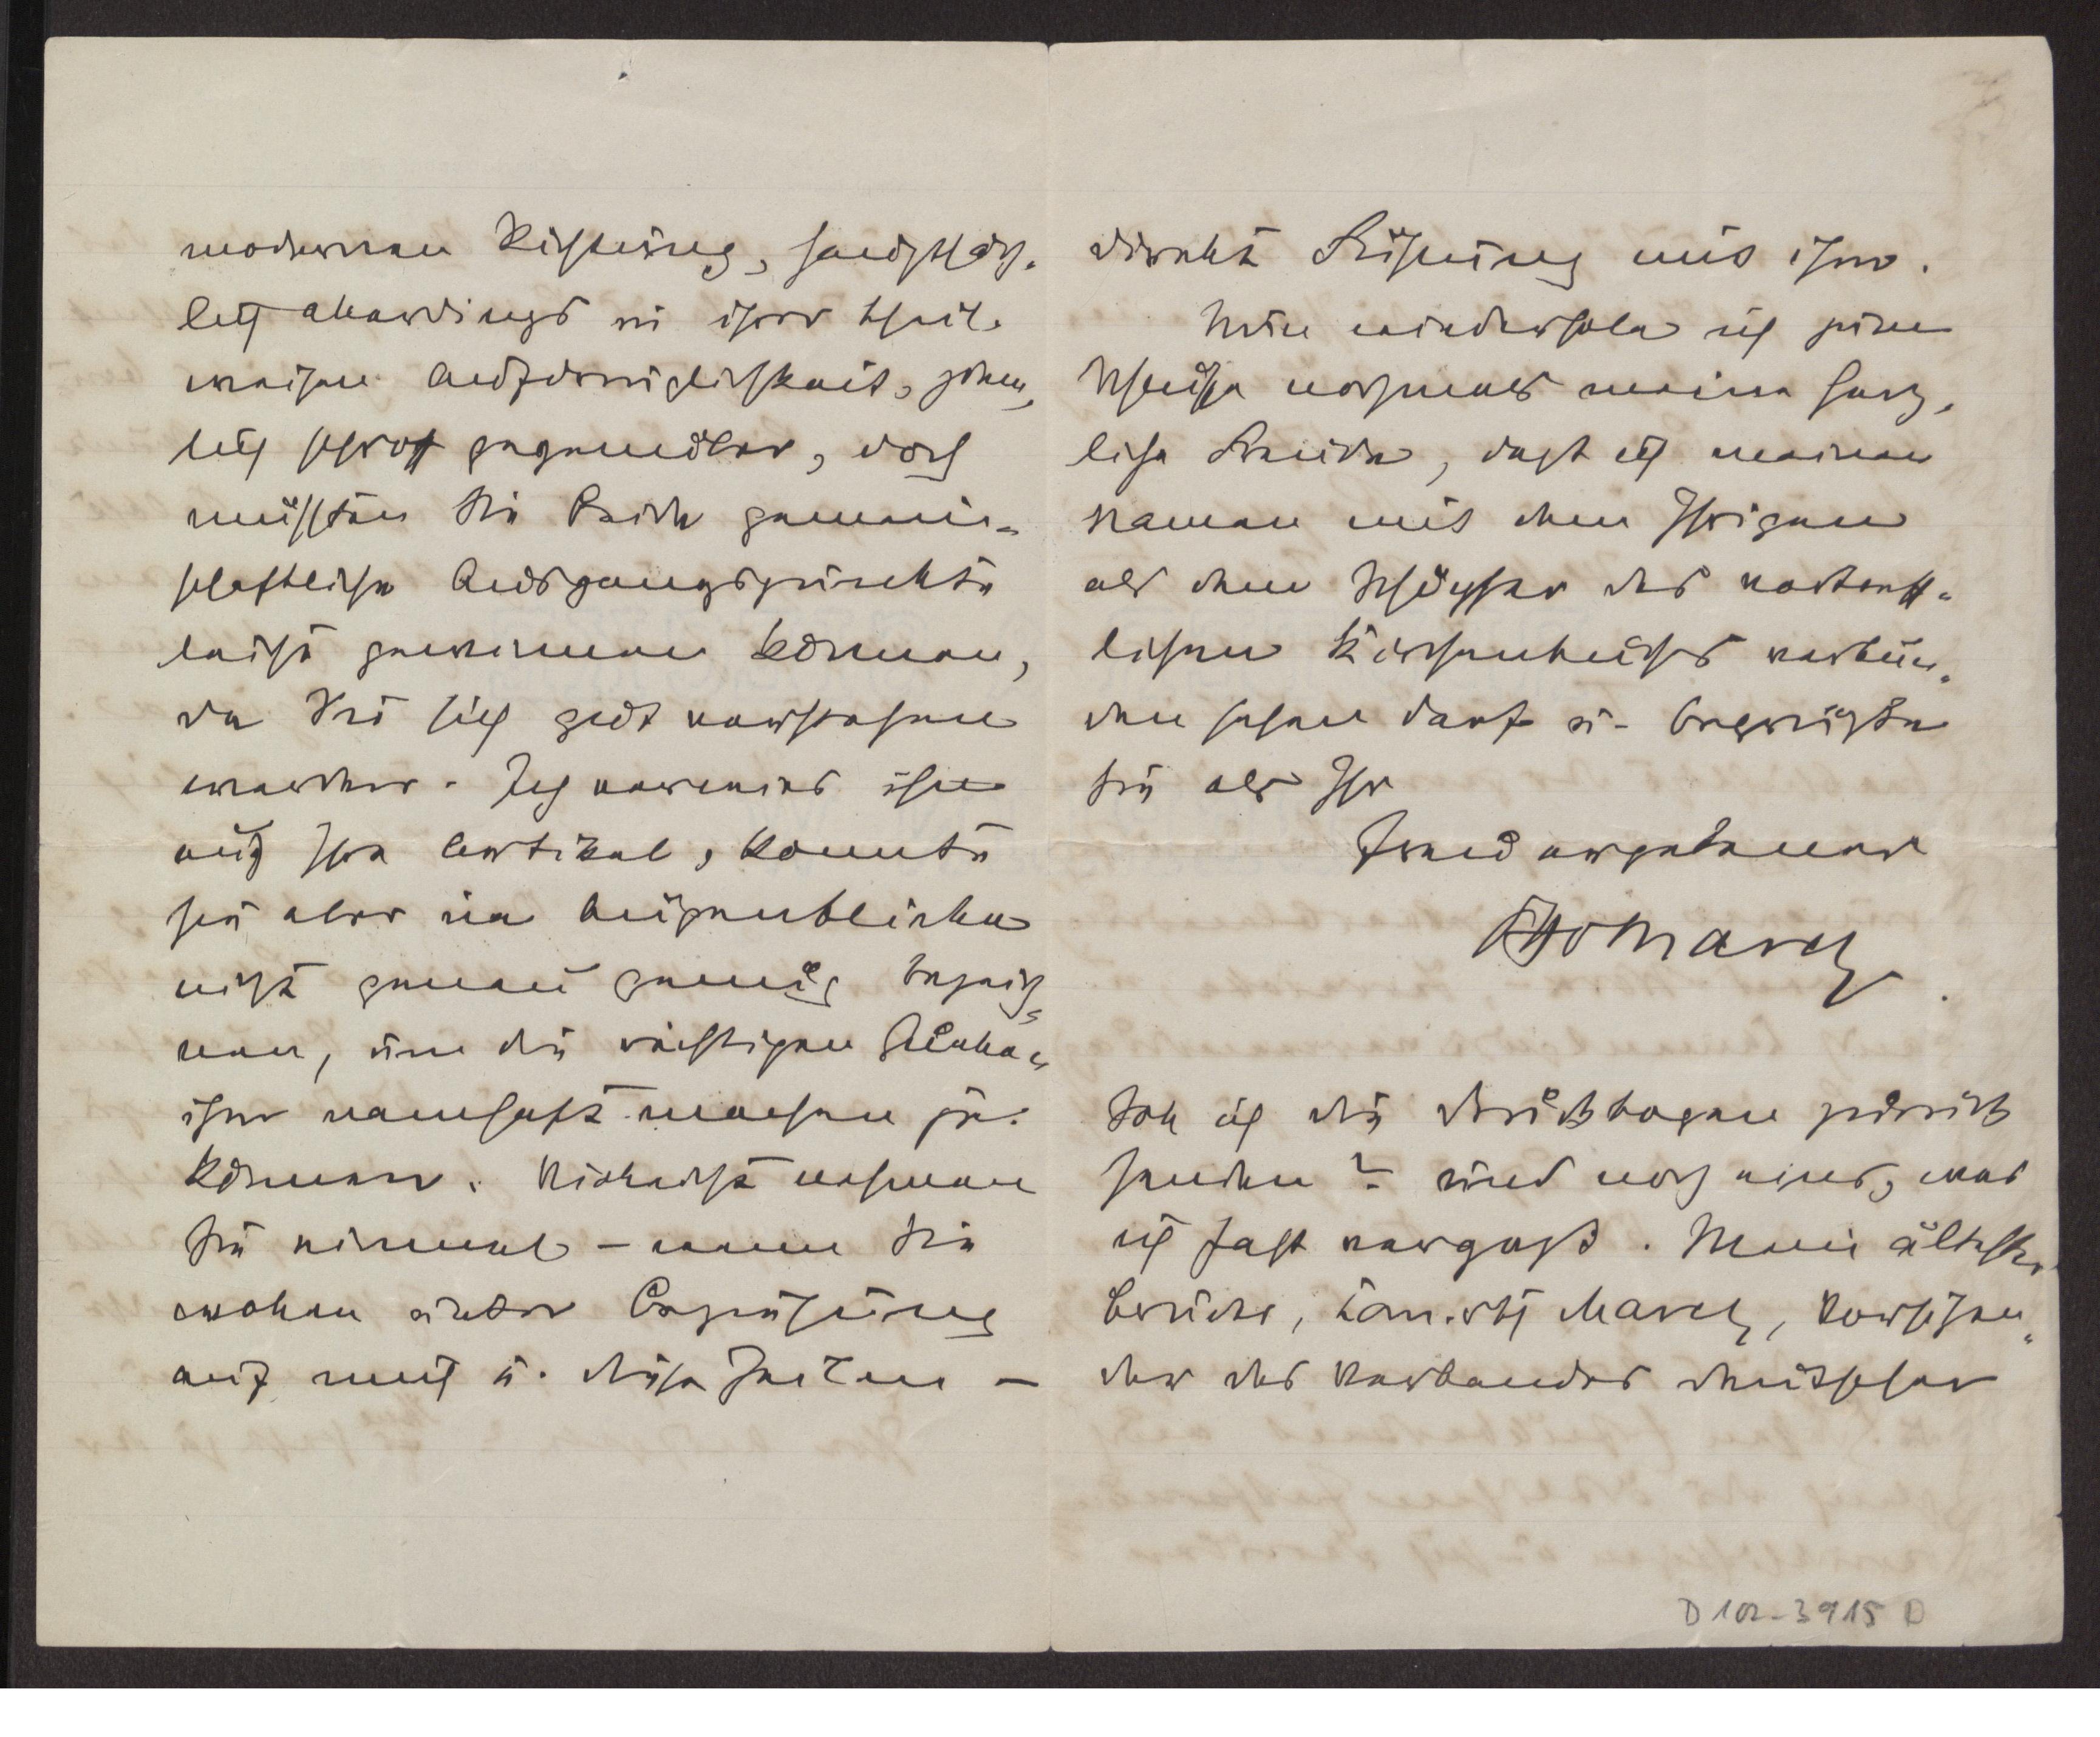 modernen Richtung, hauptsäch-
lich allerdings in ihrer theil-
weisen Aufdringlichkeit, ziem-
lich schroff gegenüber, doch
müssten Sie Beide gemein-
schaftliche Ausgangspunkte
leicht gewinnen können,
da Sie sich gut verstehen
werden. Ich verwies ihn
auf Ihre Artikel, konnte
sie aber im Augenblicke
nicht genau genug bezeich-
nen, um die richtigen
ihm namhaft machen zu
können. Vielleicht nehmen
Sie einmal – wenn Sie
wollen unter Beziehung
auf mich u. diese Zeilen –
direkt Fühlung mit ihm.
Nun wiederhole ich zum
Schlusse nochmals meine herz-
liche Freude, dass ich meinen
Namen mit dem Ihrigen
als dem Schöpfer des vortreff-
lichen Kirchenbuches verbun-
den sehen darf u. begrüsse
Sie als Ihr
Freundergebener
Otto March
Soll ich die Druckbogen zurück
senden? – und noch eines, was
ich fast vergass. Mein ältester
Bruder, Com.rth March, Vorsitzen-
der des Verbandes deutscher
D 102-3915 D